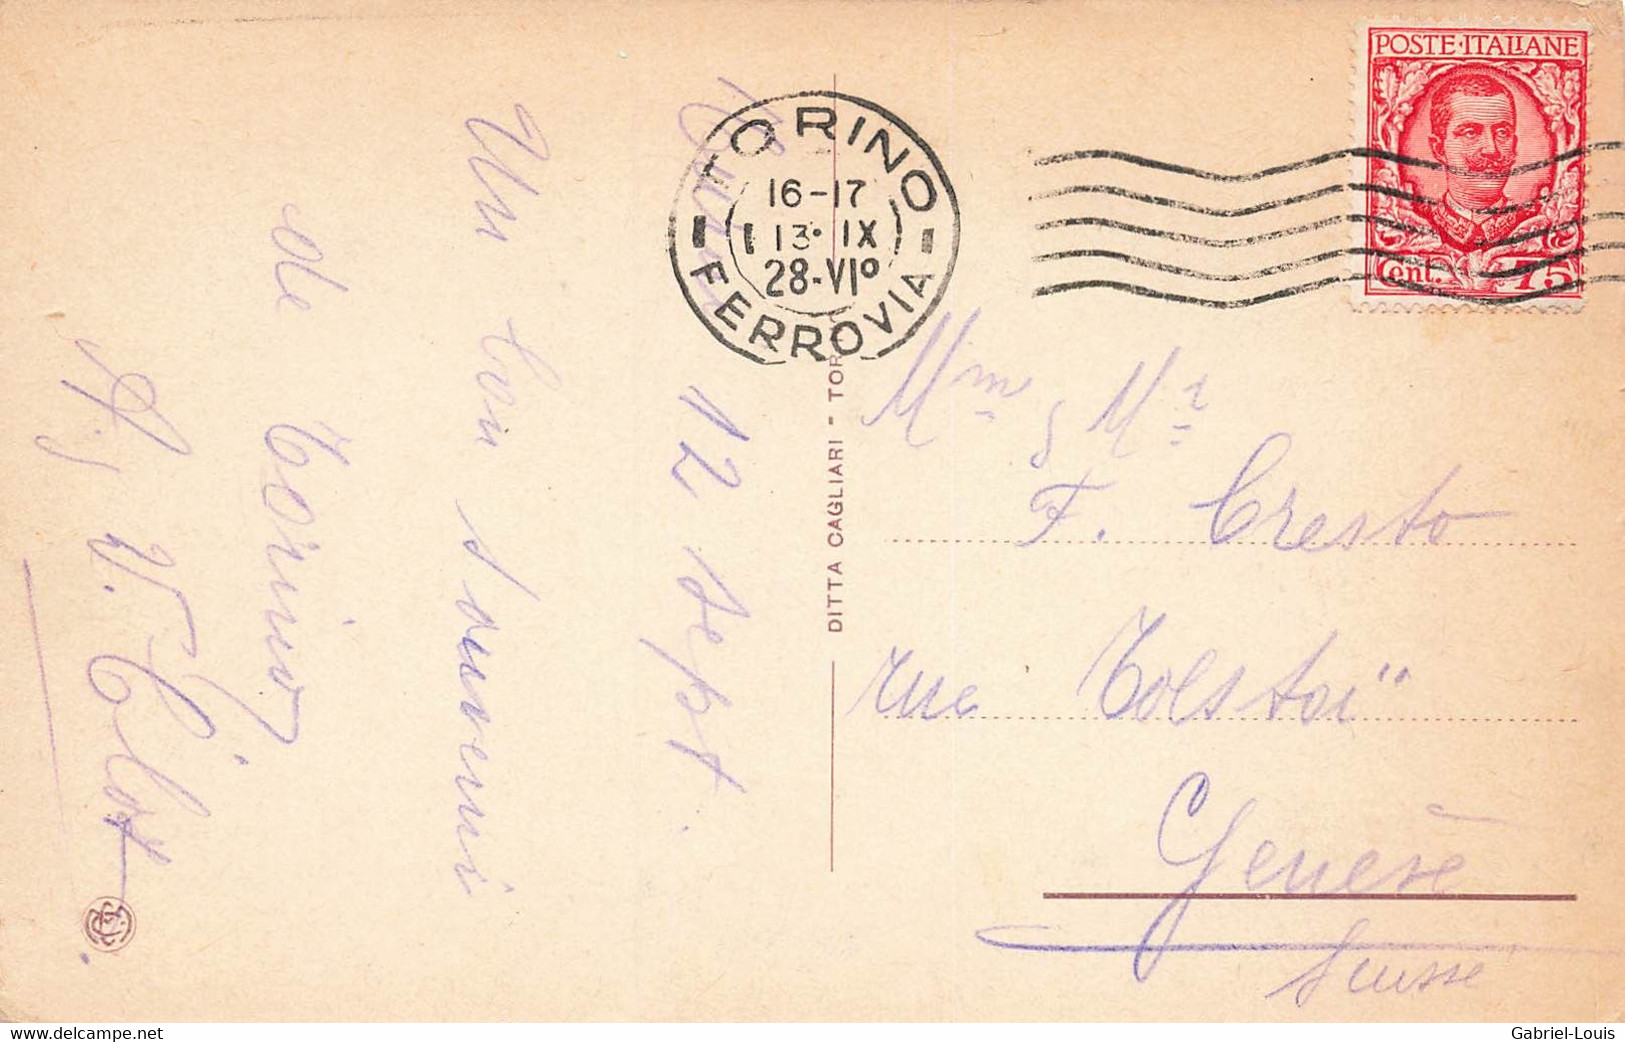 12 Sept.
Un bon souvenir
de Torino
V. Clot
DITTA CAGLIARI - TOR
TORINO
16-17
13·IX
28-VIº
FERROVIA
POSTE·ITALIANE
Cent. 75
Mme & Mr
F. Cresto
rue Tolstoi
Genève
Suisse
www.delcampe.net
Gabriel-Louis